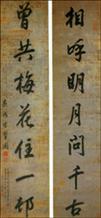 相呼明月問千古
曾共梅花住一邨